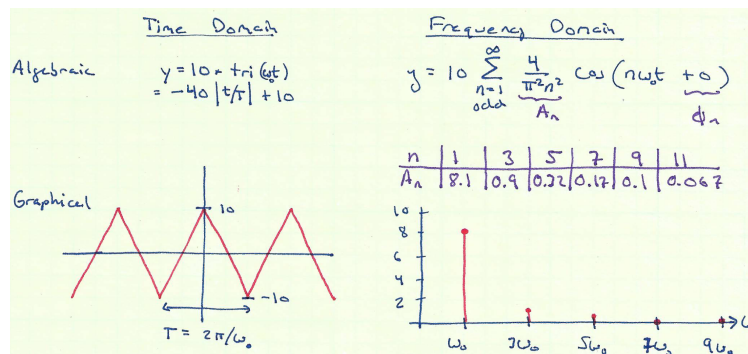 Time Domain
Frequency Domain
Algebraic
y = 10 * tri(ω₀t)
= -40 |t/T| + 10
y = 10 ∑ 4/π²n² cos(nω₀t + 0)
∞
n=1
odd
Aₙ
ϕₙ
n | 1 | 3 | 5 | 7 | 9 | 11
Aₙ | 8.1 | 0.9 | 0.32 | 0.17 | 0.1 | 0.067
Graphical
10
-10
T = 2π/ω₀
10
8
6
4
2
ω₀ 3ω₀ 5ω₀ 7ω₀ 9ω₀ ω